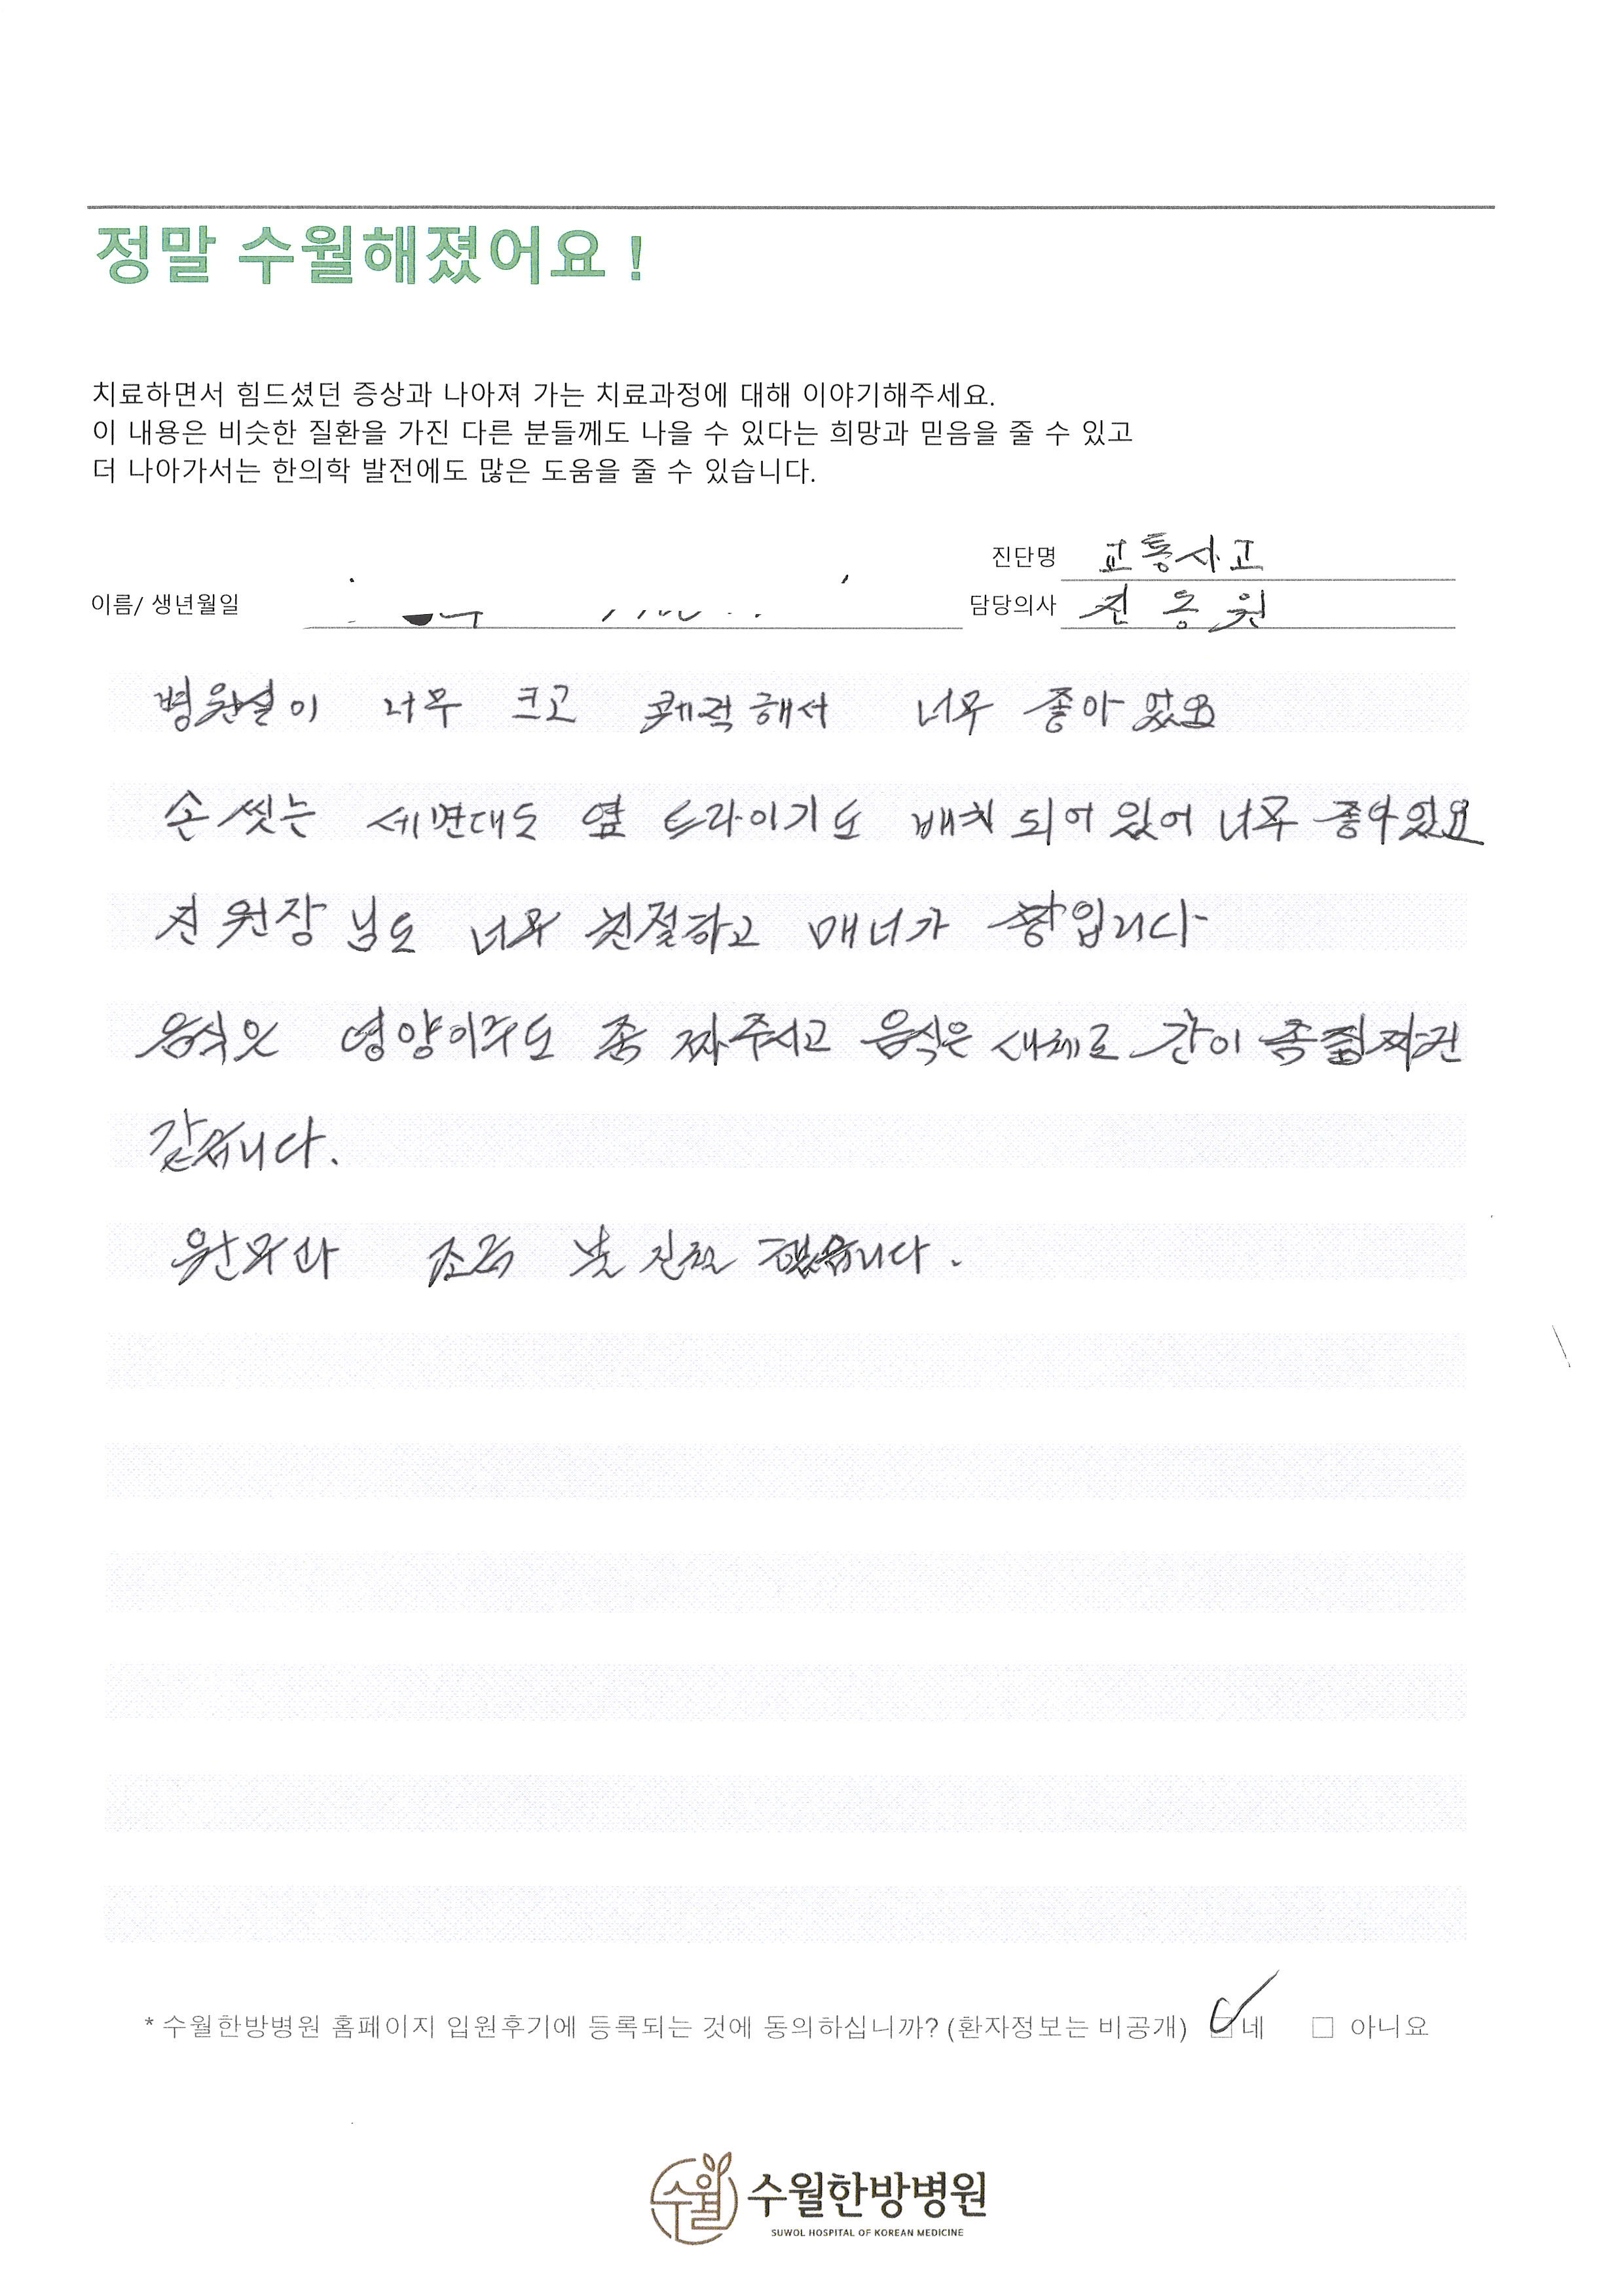 정말 수월해졌어요 !
치료하면서 힘드셨던 증상과 나아져 가는 치료과정에 대해 이야기해주세요.
이 내용은 비슷한 질환을 가진 다른 분들께도 나을 수 있다는 희망과 믿음을 줄 수 있고
더 나아가서는 한의학 발전에도 많은 도움을 줄 수 있습니다.
진단명 교통사고
이름/ 생년월일 담당의사 진용원
병원실이 너무 크고 쾌적해서 너무 좋아았요
손씻는 세면대도 옆 드라이기도 배치 되어 있어 너무 좋아있요
진 원장님도 너무 친절하고 매너가 짱입니다
영양이주도 좀 짜주시고 음식은 대체로 간이 좀 짜긴
같습니다.
원무과 조금 불친절 했습니다.
* 수월한방병원 홈페이지 입원후기에 등록되는 것에 동의하십니까? (환자정보는 비공개) 네 아니요
수월 수월한방병원
SUWOL HOSPITAL OF KOREAN MEDICINE